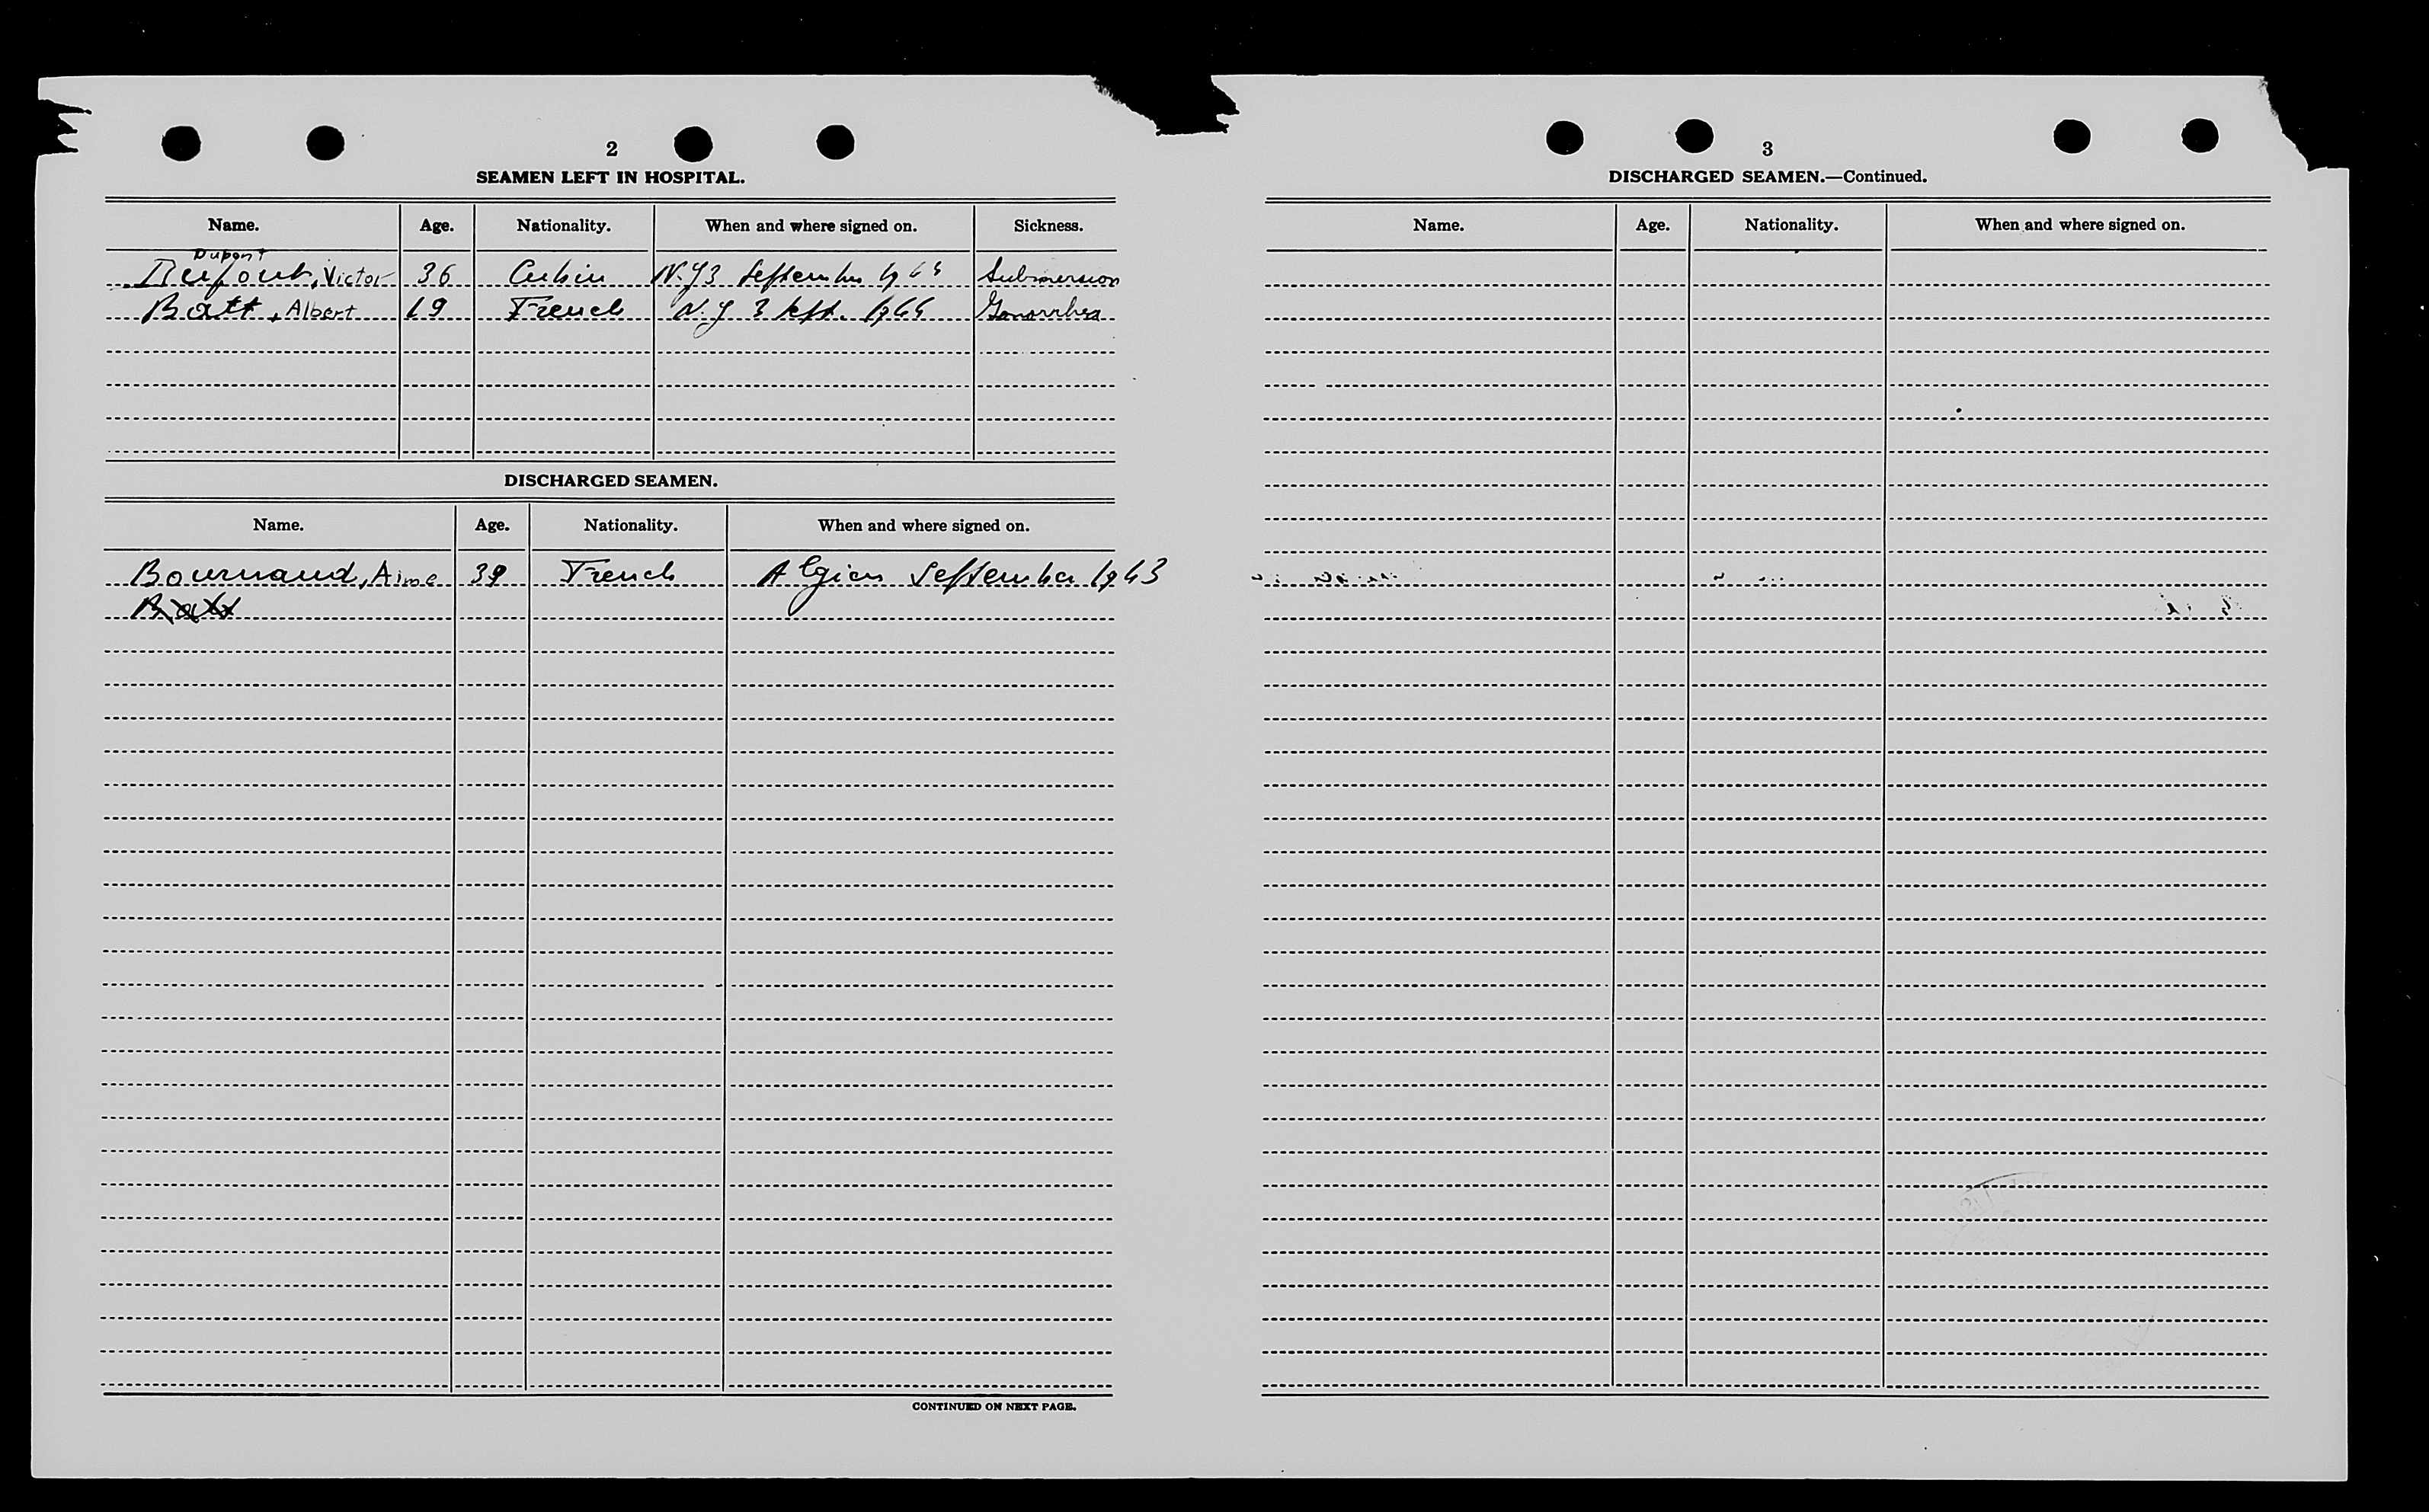 2
SEAMEN LEFT IN HOSPITAL.
Name. Age. Nationality. When and where signed on. Sickness.
Dupont
Victor 36 N.Y 3 September Submersion
Batt, Albert 19 French N.Y 3 sept. Gonorrhea
DISCHARGED SEAMEN.
Name. Age. Nationality. When and where signed on.
Bournaud, Aime 39 French Algiers September 1943
Batt
CONTINUED ON NEXT PAGE.
3
DISCHARGED SEAMEN.—Continued.
Name. Age. Nationality. When and where signed on.